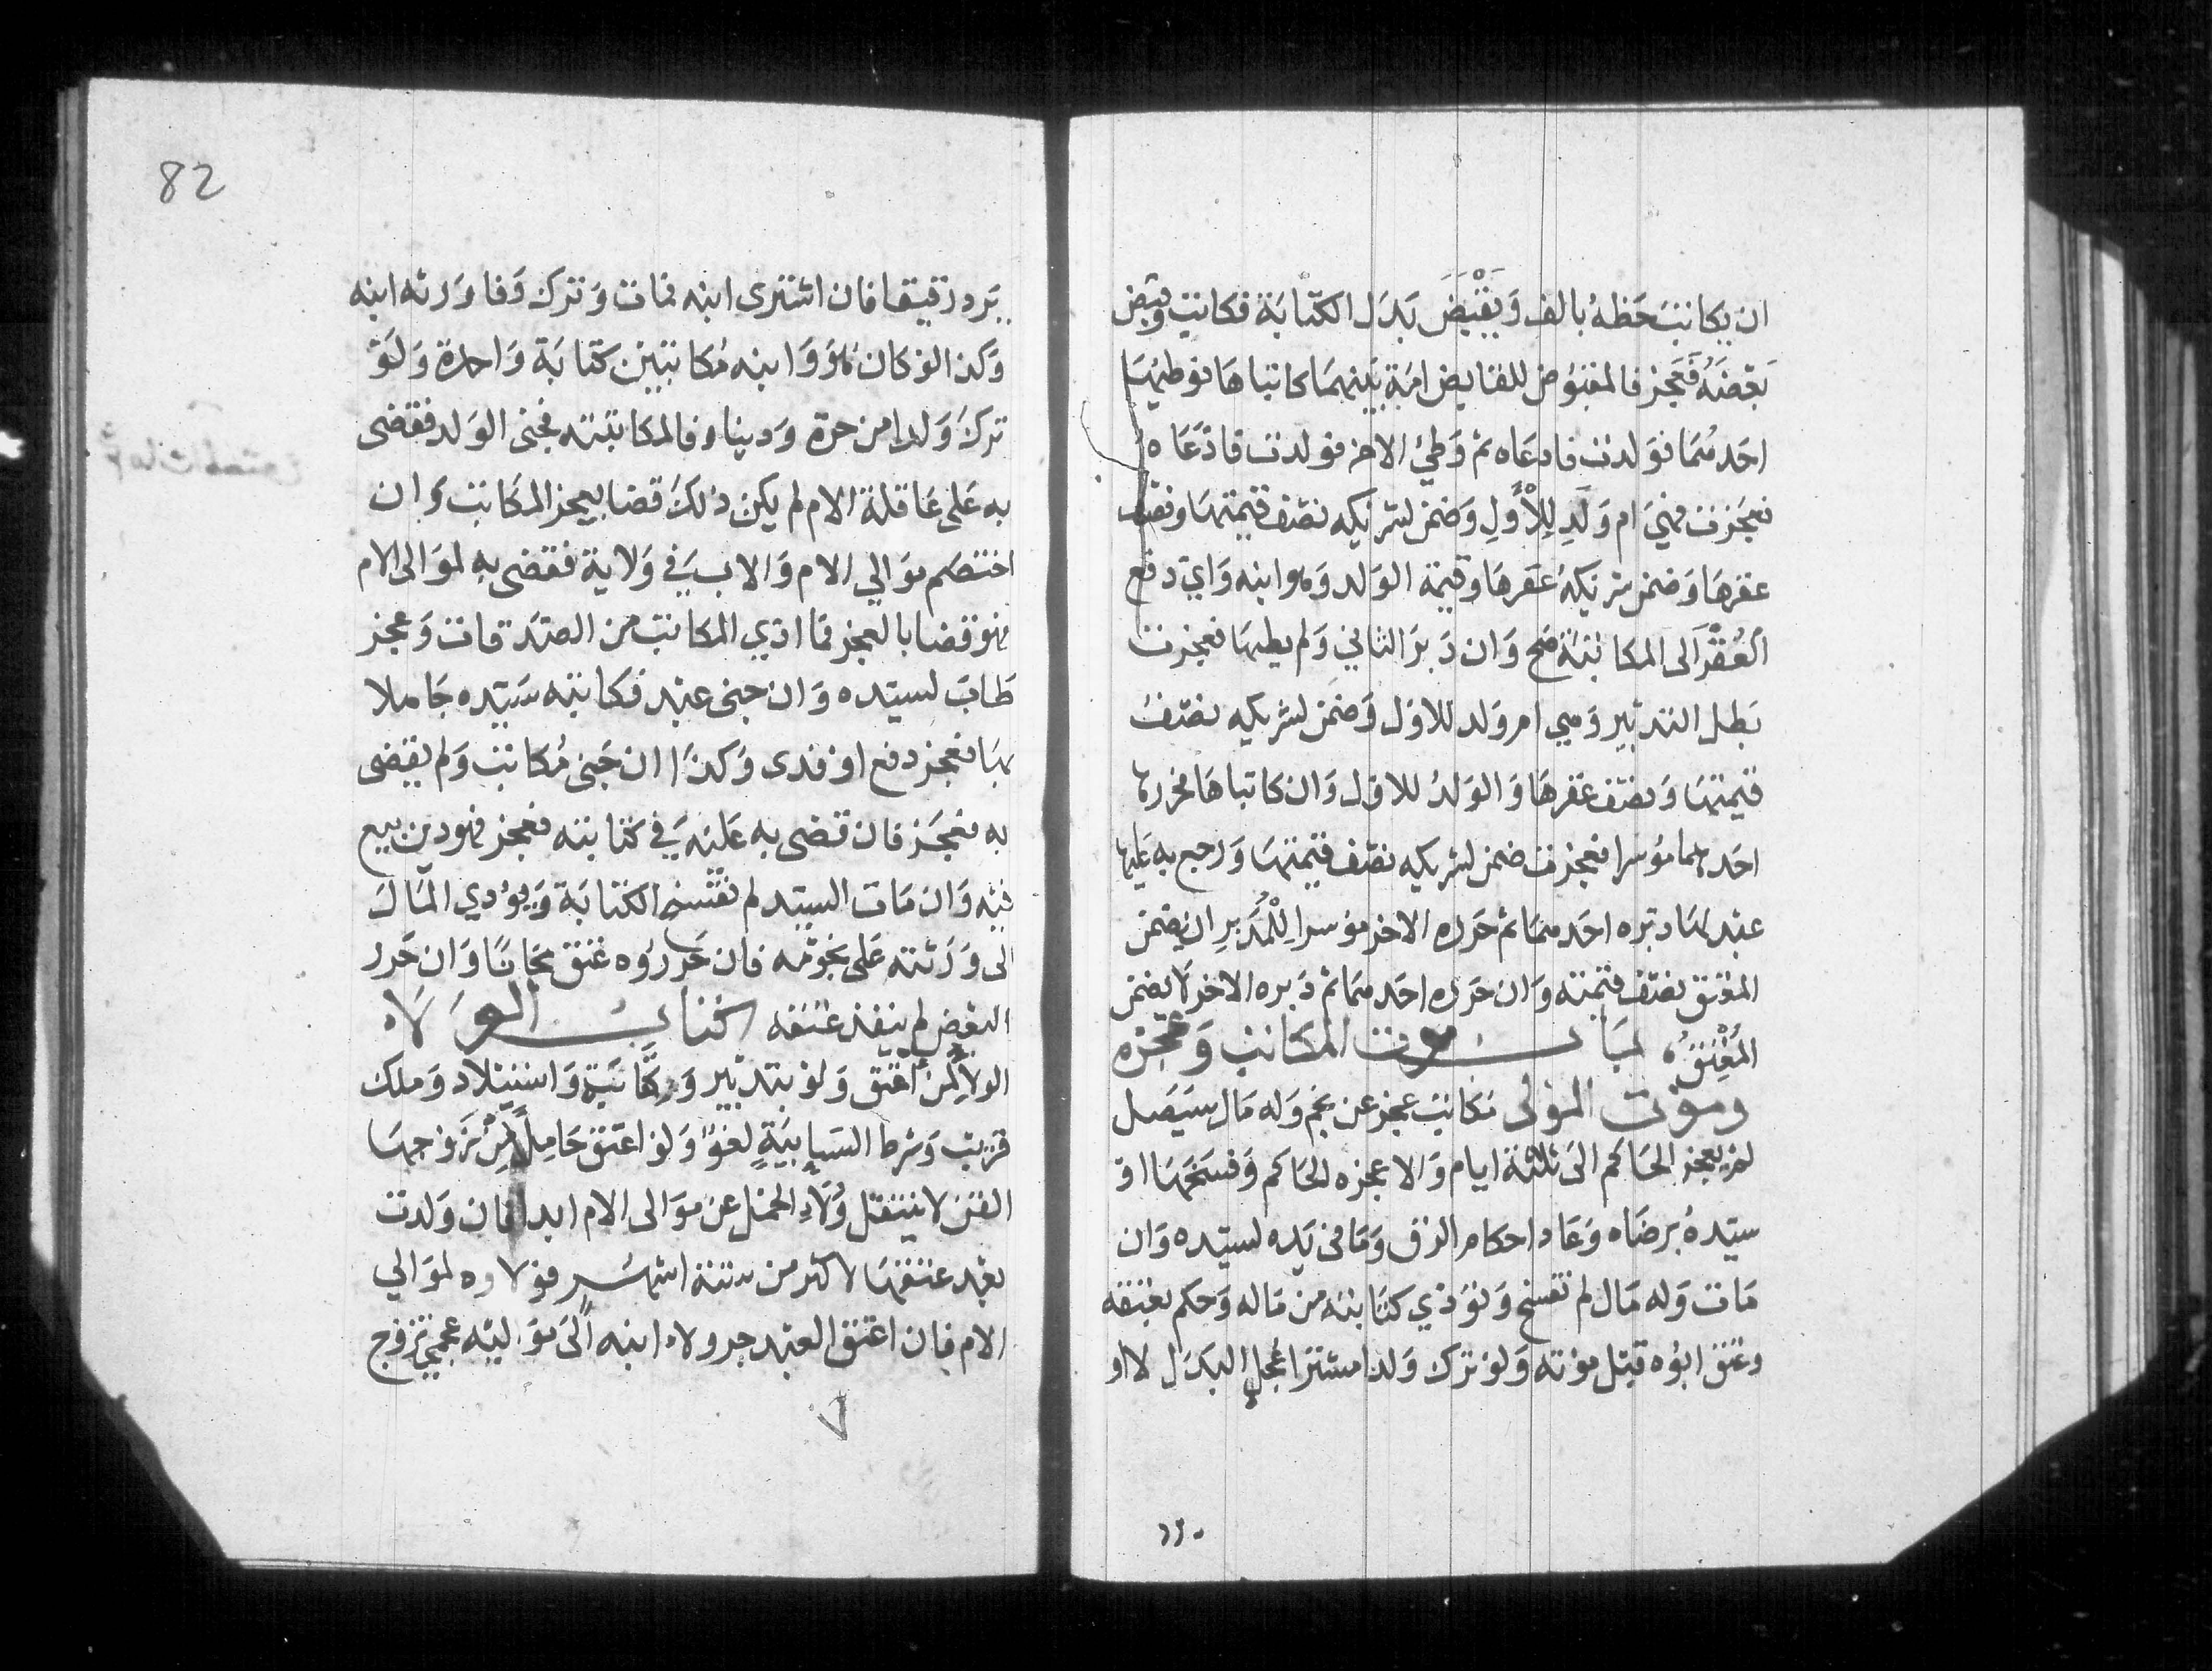 ان يكاتب حظه بالف وَيقْبَضَ بَدَل الكتابَة فكاتب وقبض
بَعضَهُ فَعَجز فالمقبُوض للقابض امَة بَينهمَا كاتباهَا فوطيهَا
احَدهُمَا فوَلدت فادعَاه ثم وَطئ الاخر فولدت فادّعَاه
فعَجَزت فهيَ ام وَلَدٍ لِلأولِ وَضمن لشريكه نصْف قيمتهَا ونصْف
عقرهَا وَضمن شريكهُ عقرهَا وقيمة الوَلد وَهو ابنه وَاي دفع
العُقْرَ الى المكاتبة صَح وَان دَبرَ الثاني وَلم يطيهَا فعجزت
بَطل التدبير وَهي ام وَلد للاول وَضمن لشريكه نصْفُ
قيمتهَا وَنصْف عقرهَا وَالوَلدُ للاوَل وَان كاتباهَا فحررها
احَدهما مُوسَرا فعجزت ضمن لشريكه نصْف قيمتهَا وَرَجع به عَليها
عبْد لهمَا دبّره احَدهمَا ثم حَرره الاخر موسرا لِلْمُدَبرِ ان يضمن
المعْتق نصْف قيمته وَان حَرره احَدهمَا ثم دَبره الاخر لَا يضمن
المُعْتِقَ، بَاب موت المكاتب وَعجزه
وموْت المَوْلى مكاتب عجز عن نجم وَله مَال سَيَصل
لم يعجز الحَاكم الىَ ثلاثة ايام وَالا عجزه الحَاكم وَفسَخهَا اوْ
سيّدهُ برضَاه وَعَاد احكام الرق وَمَا في يَده لسيّده وَان
مَات وَله مَال لم تفسخ وَتؤدّي كتَابته من مَاله وَحكم بعتقه
وعتق ابُوه قبْل مَوْته وَلوْ ترك وَلدا مشترا عُجل البَدَل لا او
82
يَرد رَقيقا فان اشترى ابنه فمات وَترك وَفا وَرثه ابنه
وَكذا لو كان هُوَ وَابنه مُكاتبين كتَابَة وَاحدة وَلَوْ
تركَ وَلدا من حرة وَدينا وفا لمكاتبته فجنى الوَلد فقضى
به عَلى عَاقلة الام لم يكن ذلكَ قضا بعجز المكَاتب وَان
اختصَم مَوَالي الام وَالاب في وَلاية فقضى به لموَالى الام
فهو قضا بالعجز فما ادّي المكاتب من الصّدَقات وَعجز
طَابَ لسيّده وَان جنى عبْد فكاتبه سَيّده جَاهلا
بهَا فعجز دفع اوْ فدى وَكذَا ان جَنى مُكاتب وَلم يقضى
به فعَجَز فان قضى به عَلَيه في كتابته فعجز فهو دين بيع
فيْه وَان مَات السيّد لم تفسخ الكتابَة وَيؤدي المَالَ
الى وَرَثته عَلى نجوْمه فان حَررُوه عَتق مجانًا وَان حَرر
البعْض لم ينفذ عتقه كتاب الوَلَاء
الولا لِمَنْ اعْتق وَلوْ بتدبير وَكِتَابَةٍ وَاستيلاد وَملك
قريب وَشرط السّايبَةِ لغوٌ وَلو اعتق حَامِلًا مِنْ زوْجهَا
القنّ لا ينتقل وَلاءِ الحمل عن مَوَالى الام ابدا فان وَلدت
بعْد عتقهَا لاكثر من ستة اشهُر فوَلاوه لموَالي
الام فان اعتق العبْد جر ولاء ابنه الَى مَوَاليه عجمي تزوج